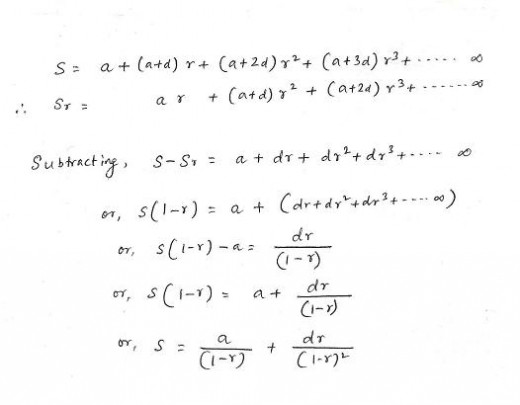 S = a + (a+d) r + (a+2d) r² + (a+3d) r³ + ..... ∞
∴ Sr = a r + (a+d) r² + (a+2d) r³ + ...... ∞
Subtracting, S-Sr = a + dr + dr² + dr³ + .... ∞
or, S(1-r) = a + (dr + dr² + dr³ + .... ∞)
or, S(1-r) - a = dr/(1-r)
or, S(1-r) = a + dr/(1-r)
or, S = a/(1-r) + dr/(1-r)²